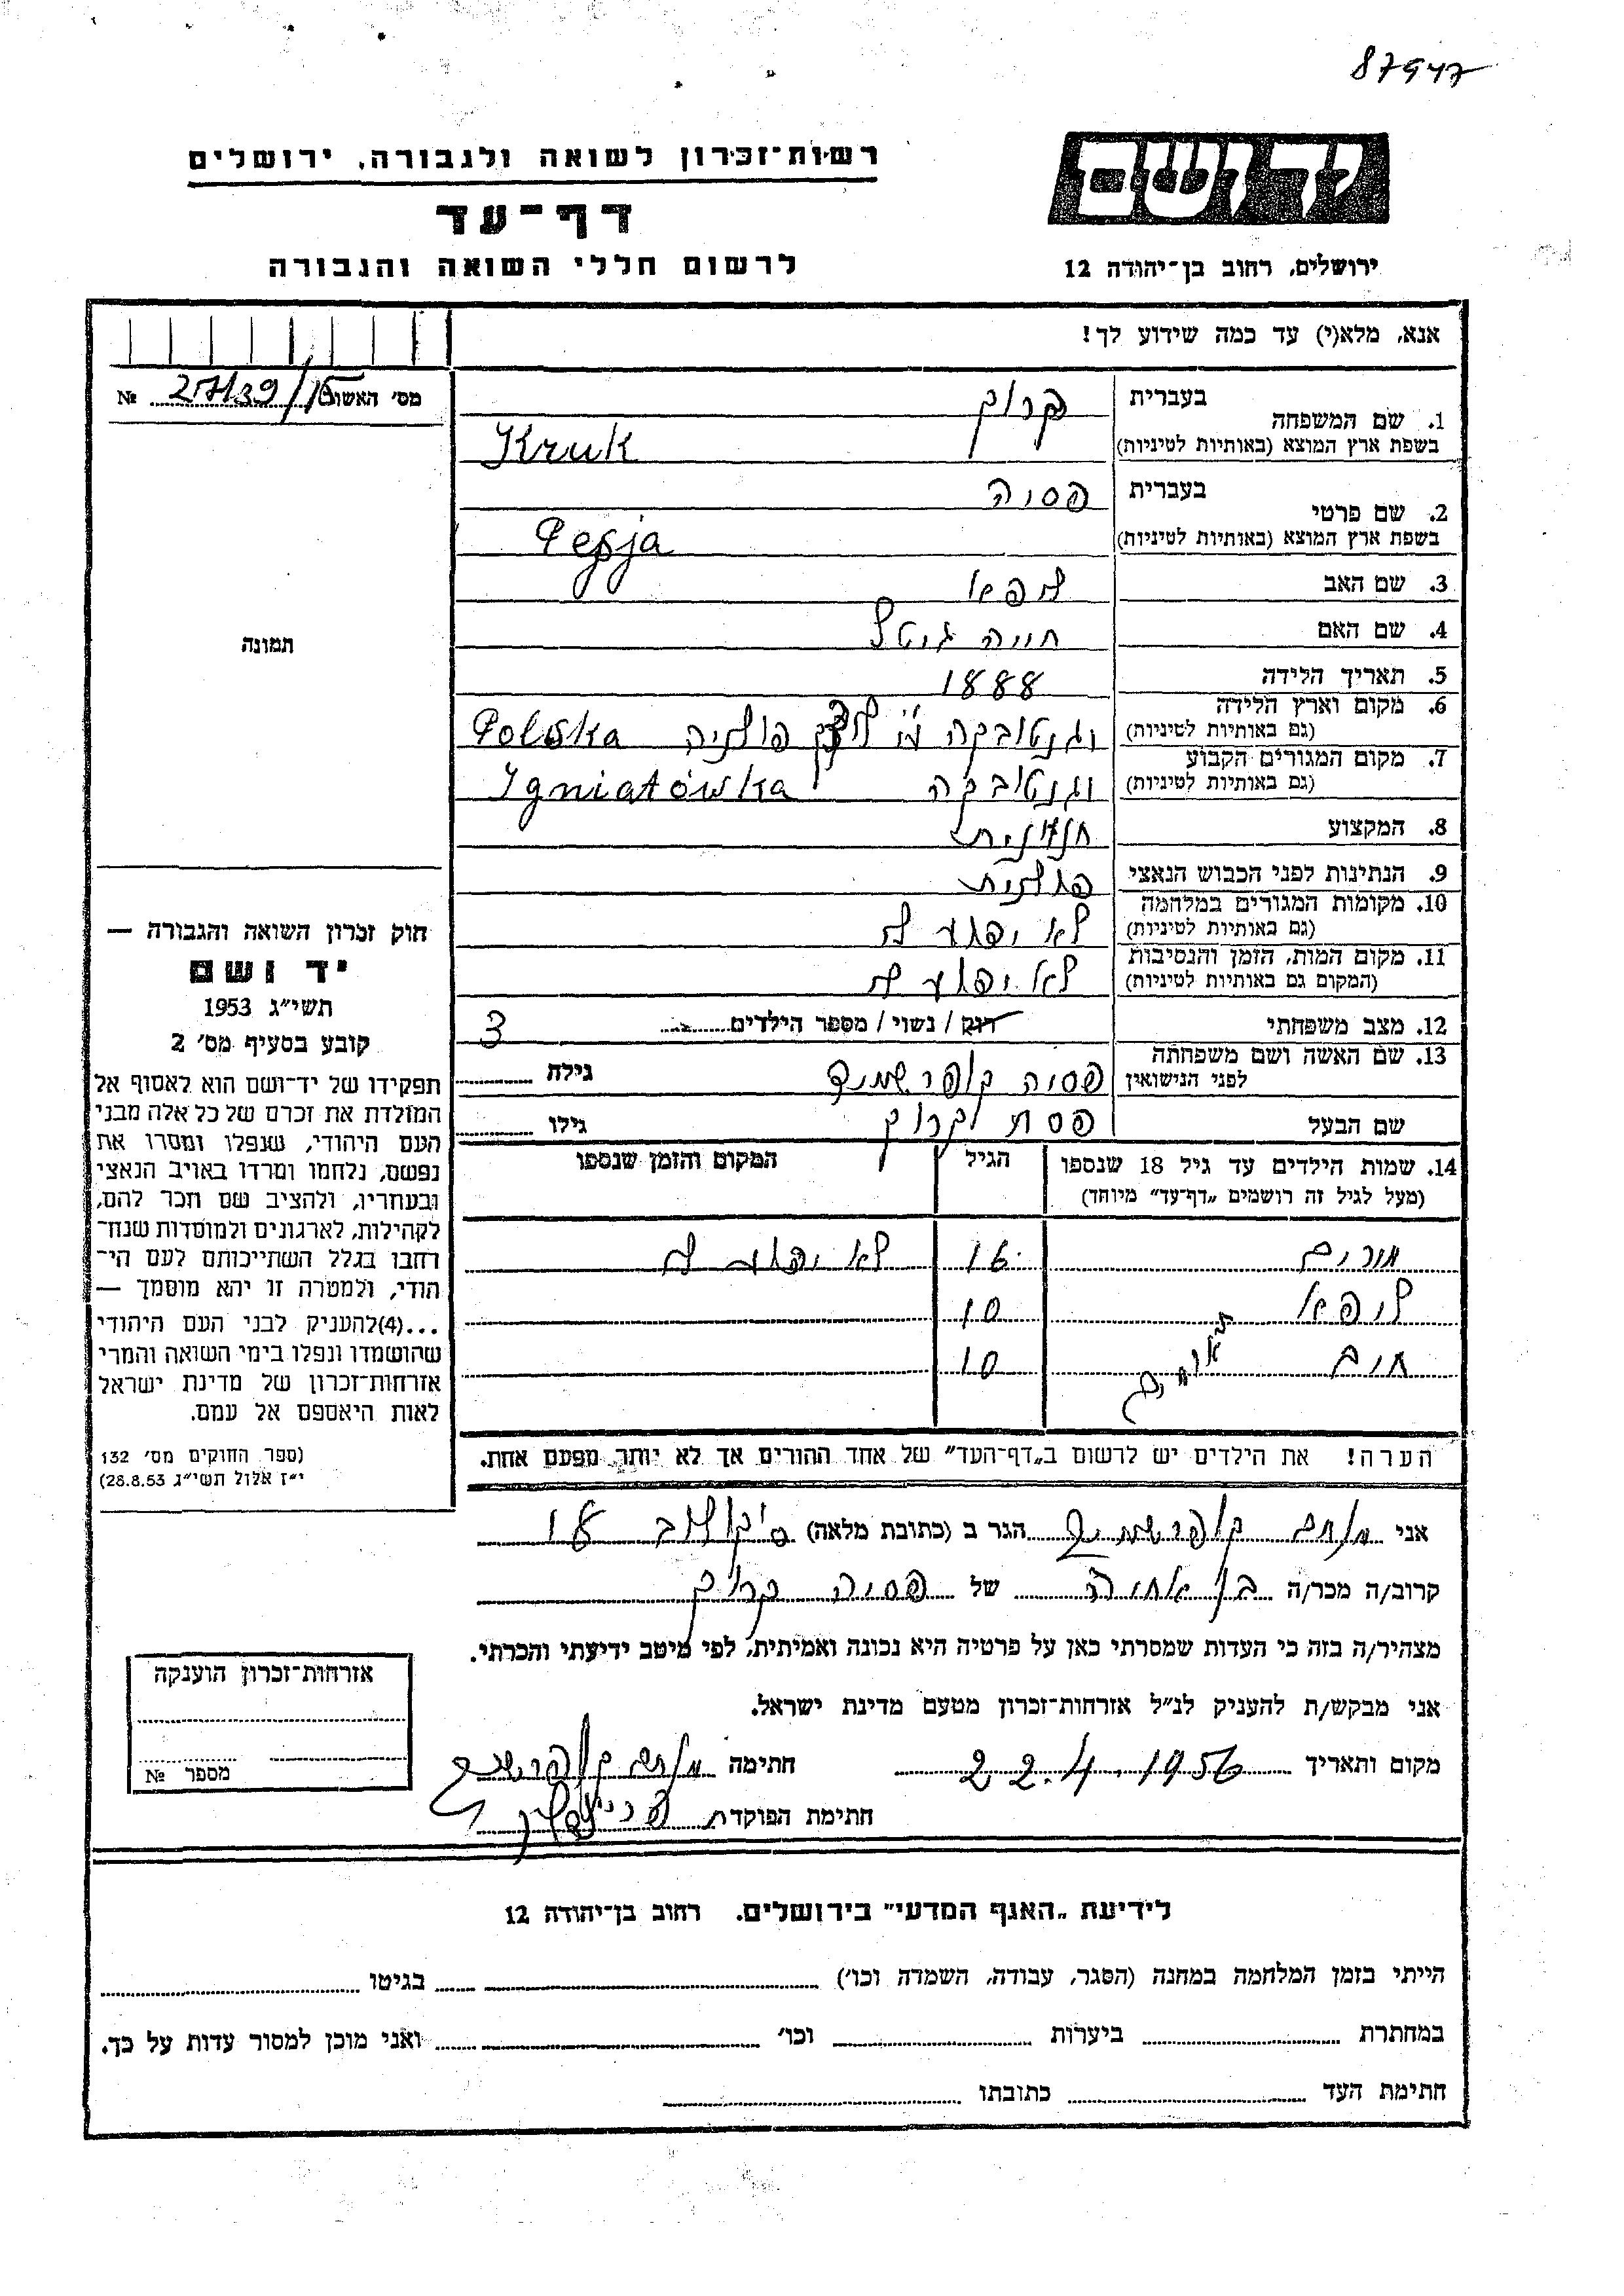 87947
רשות־זכרון לשואה ולגבורה, ירושלים
יד ושם
דף־עד
לרשום חללי השואה והגבורה
ירושלים, רחוב בן־יהודה 12
אנא, מלא(י) עד כמה שידוע לך!
מס׳ האשור № 27139/15
1. שם המשפחה בעברית קרוק
בשפת ארץ המוצא (באותיות לטיניות) Kruk
2. שם פרטי בעברית פסיה
בשפת ארץ המוצא (באותיות לטיניות) Pesja
3. שם האב
4. שם האם חייה גיטל
5. תאריך הלידה 1888
6. מקום וארץ הלידה (גם באותיות לטיניות) פולניה Polska
7. מקום המגורים הקבוע (גם באותיות לטיניות) Igniatówka
8. המקצוע חנונית
9. הנתינות לפני הכבוש הנאצי פולנית
10. מקומות המגורים במלחמה (גם באותיות לטיניות) לא יפוע לי
11. מקום המות, הזמן והנסיבות (המקום גם באותיות לטיניות) לא יפוע לי
12. מצב משפחתי רוק / נשוי / מספר הילדים 3
13. שם האשה ושם משפחתה לפני הנישואין פסיה קופרשמיד גילה
שם הבעל פסח קרוק גילו
14. שמות הילדים עד גיל 18 שנספו
(מעל לגיל זה רושמים „דף־עד״ מיוחד)
הגיל
המקום והזמן שנספו
מרים 16 לא יפוע לי
ליפא 10
חיים 10
תאומים
הערה! את הילדים יש לרשום ב„דף־העד״ של אחד ההורים אך לא יותר מפעם אחת.
תמונה
חוק זכרון השואה והגבורה —
יד ושם
תשי״ג 1953
קובע בסעיף מס׳ 2
תפקידו של יד־ושם הוא לאסוף אל
המולדת את זכרם של כל אלה מבני
העם היהודי, שנפלו ומסרו את
נפשם, נלחמו ומרדו באויב הנאצי
ובעוזריו, ולהציב שם וזכר להם,
לקהילות, לארגונים ולמוסדות שנח־
רבו בגלל השתייכותם לעם הי־
הודי, ולמטרה זו יהא מוסמך —
...(4) להעניק לבני העם היהודי
שהושמדו ונפלו בימי השואה והמרי
אזרחות־זכרון של מדינת ישראל
לאות היאספם אל עמם.
(ספר החוקים מס׳ 132
י״ז אלול תשי״ג 28.8.53)
אני מנחם קופרשמיד הגר ב (כתובת מלאה)
קרוב/ה מכר/ה בן אחיה של פסיה קרוק
מצהיר/ה בזה כי העדות שמסרתי כאן על פרטיה היא נכונה ואמיתית, לפי מיטב ידיעתי והכרתי.
אני מבקש/ת להעניק לנ״ל אזרחות־זכרון מטעם מדינת ישראל.
מקום ותאריך 22.4.1956 חתימה מנחם קופרשמיד
חתימת הפוקדת
אזרחות־זכרון הוענקה
מספר №
לידיעת „האגף המדעי״ בירושלים, רחוב בן־יהודה 12
הייתי בזמן המלחמה במחנה (הסגר, עבודה, השמדה וכו׳) בגיטו
במחתרת ביערות וכו׳ ואני מוכן למסור עדות על כך.
חתימת העד כתובתו